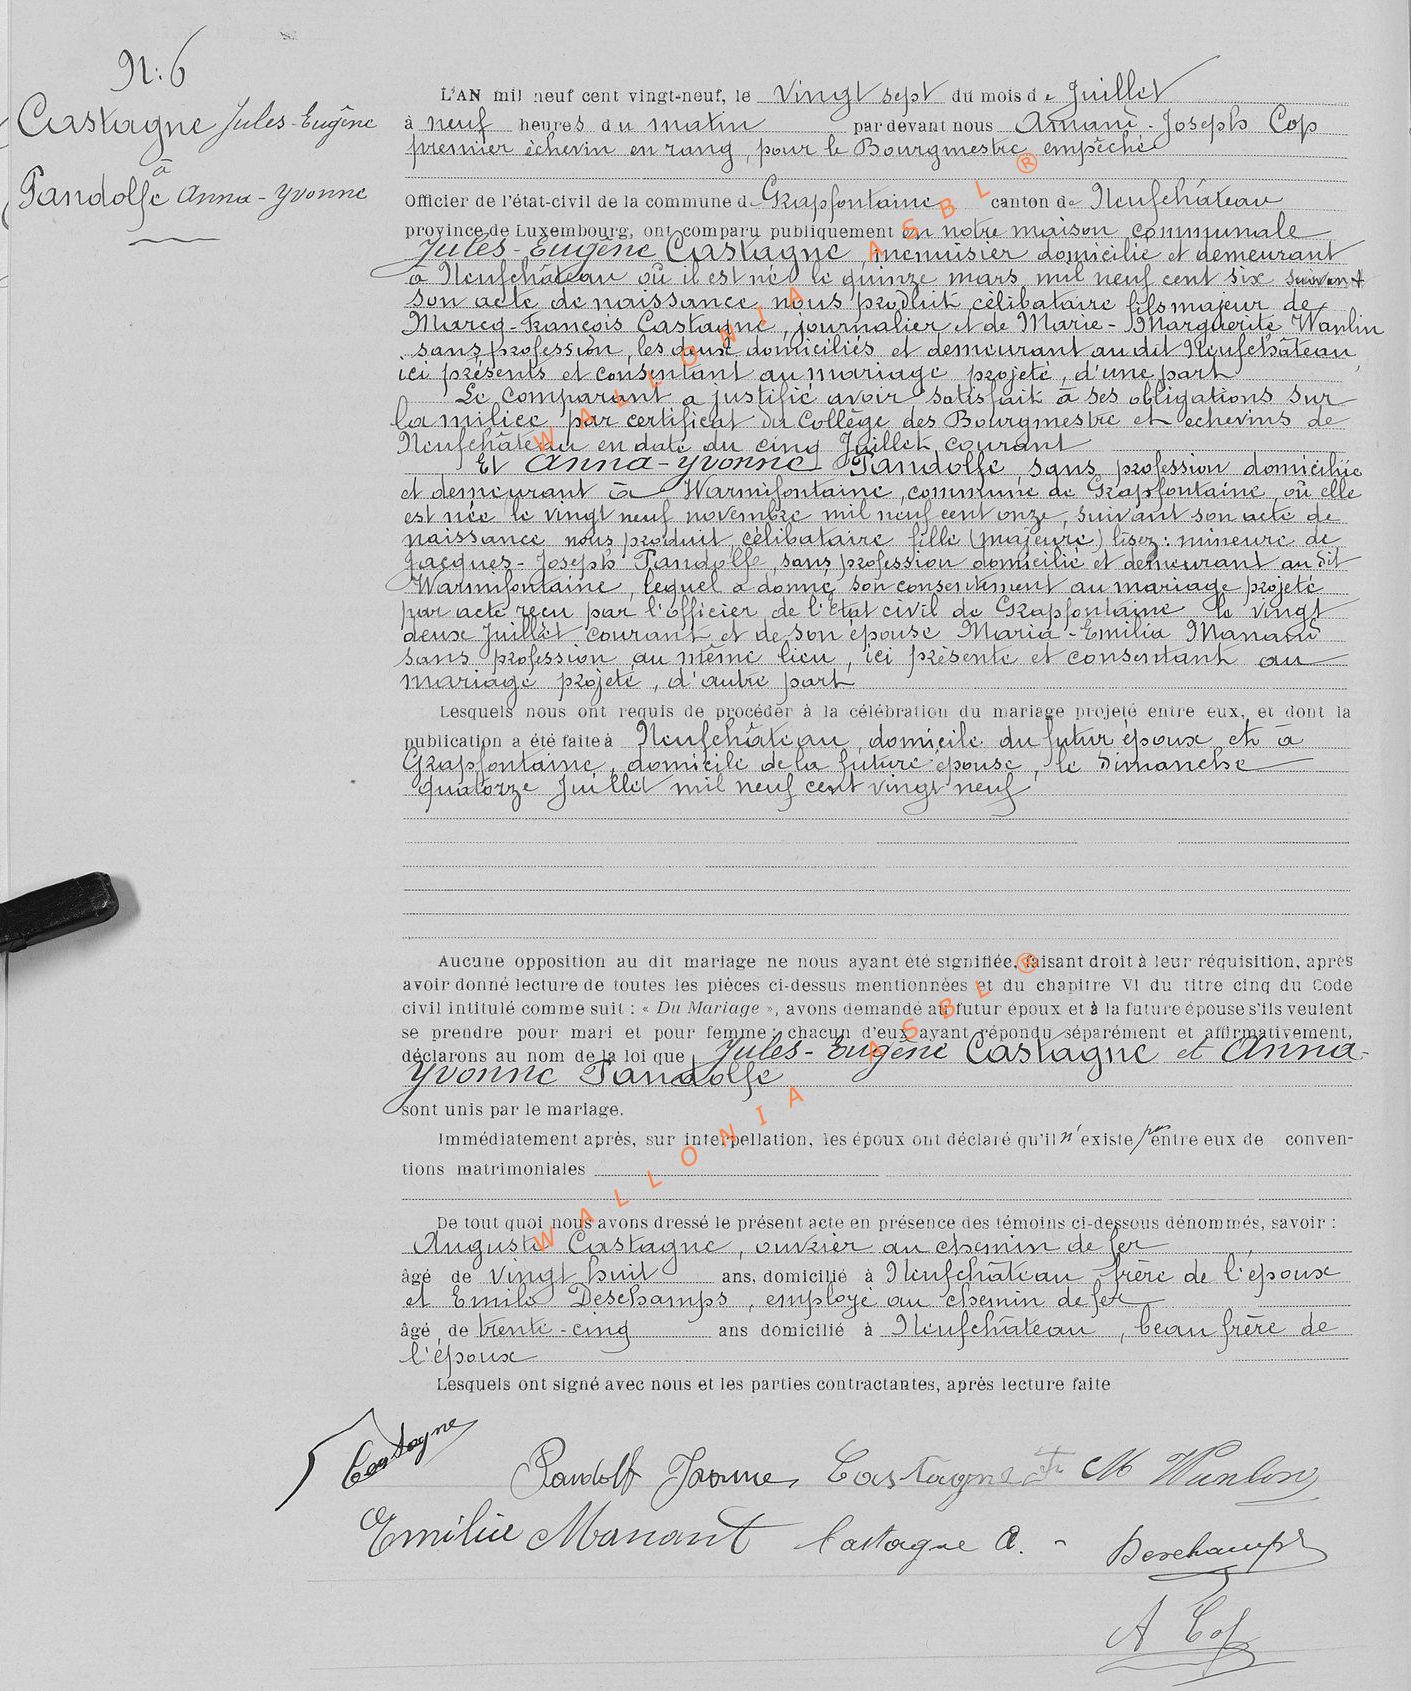 N: 6
Castagne Jules-Eugène
à
Pandolfe Anna-Yvonne
L'AN mil neuf cent vingt-neuf, le vingt sept du mois de Juillet
à neuf heures du matin par devant nous Amand-Joseph Cop
premier échevin en rang, pour le Bourgmestre empêché
Officier de l'état-civil de la commune de Grapfontaine canton de Neufchâteau
province de Luxembourg, ont comparu publiquement en notre maison communale
Jules-Eugène Castagne, menuisier domicilié et demeurant
à Neufchâteau où il est né le quinze mars mil neuf cent six suivant
son acte de naissance nous produit célibataire fils majeur de
Marcq-François Castagne, journalier et de Marie-Marguerite Wanlin
sans profession, les deux domiciliés et demeurant au dit Neufchâteau
ici présents et consentant au mariage projeté, d'une part
Le comparant a justifié avoir satisfait à ses obligations sur
la milice par certificat du Collège des Bourgmestre et echevins de
Neufchâteau en date du cinq Juillet courant
Et Anna-Yvonne Pandolfe, sans profession domiciliée
et demeurant à Warmifontaine, commune de Grapfontaine, où elle
est née le vingt neuf novembre mil neuf cent onze, suivant son acte de
naissance nous produit, célibataire fille (majeure) lisez: mineure de
Jacques-Joseph Pandolfe, sans profession domicilié et demeurant au dit
Warmifontaine, lequel a donné son consentement au mariage projeté
par acte reçu par l'officier de l'Etat civil de Grapfontaine le vingt
deux Juillet courant et de son épouse Maria-Emilia Manand
sans profession au même lieu, ici présente et consentant au
mariage projeté, d'autre part
Lesquels nous ont requis de procéder à la célébration du mariage projeté entre eux, et dont la
publication a été faite à Neufchâteau, domicile du futur époux et à
Grapfontaine, domicile de la future épouse, le Dimanche
quatorze Juillet mil neuf cent vingt neuf
Aucune opposition au dit mariage ne nous ayant été signifiée, faisant droit à leur réquisition, après
avoir donné lecture de toutes les pièces ci-dessus mentionnées et du chapitre VI du titre cinq du Code
civil intitulé comme suit : « Du Mariage », avons demandé au futur époux et à la future épouse s'ils veulent
se prendre pour mari et pour femme; chacun d'eux ayant répondu séparément et affirmativement,
déclarons au nom de la loi que Jules-Eugène Castagne et Anna-
Yvonne Pandolfe
sont unis par le mariage.
Immédiatement après, sur interpellation, les époux ont déclaré qu'il n'existe pas entre eux de conven-
tions matrimoniales
De tout quoi nous avons dressé le présent acte en présence des témoins ci-dessous dénommés, savoir :
Auguste Castagne, ouvrier au chemin de fer
âgé de vingt huit ans, domicilié à Neufchâteau frère de l'époux
et Emile Deschamps, employé au chemin de fer
âgé de trente-cinq ans domicilié à Neufchâteau, beau frère de
l'époux
Lesquels ont signé avec nous et les parties contractantes, après lecture faite
Castagne
Pandolf Castagne M Wanlin
Emilie Manant Castagne A. - Deschamps
A Cop
WALLONIA ASBL ®
WALLONIA ASBL ®